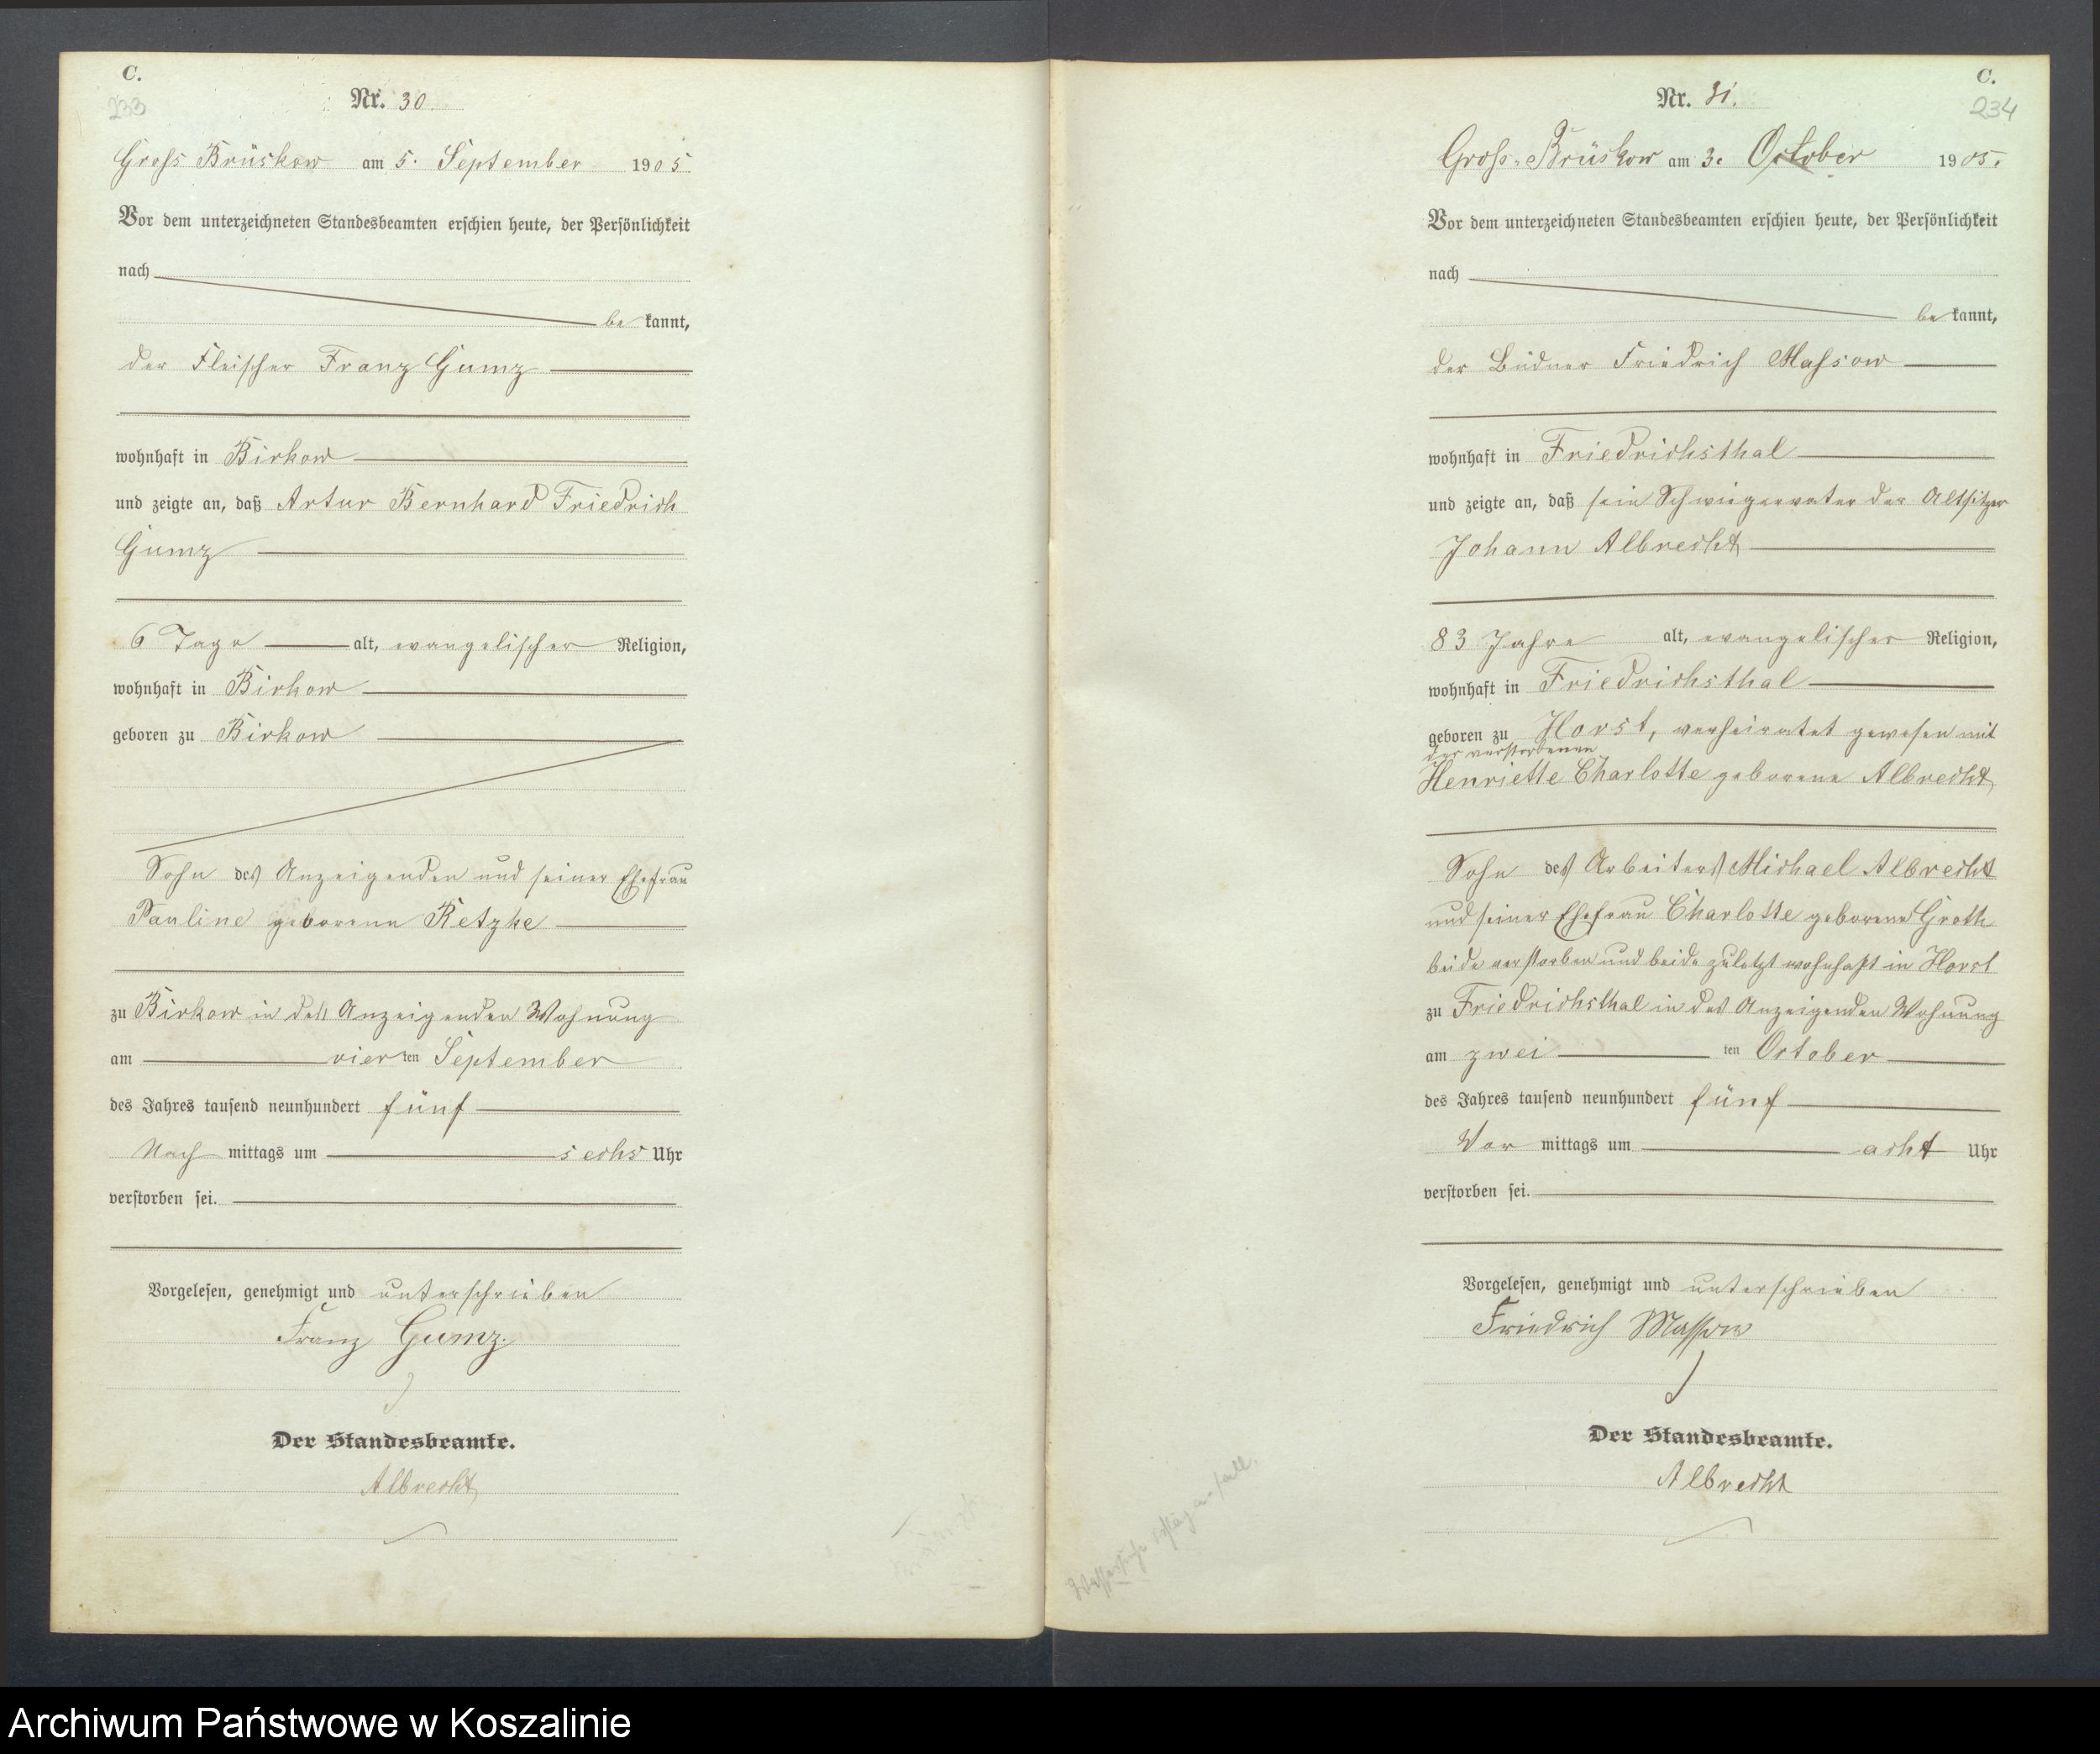 C.
233
Nr. 30.
Groß Brüskow am 5. September 1905.
Vor dem unterzeichneten Standesbeamten erschien heute, der Persönlichkeit
nach
be kannt,
der Fleischer Franz Gumz
wohnhaft in Birkow
und zeigte an, daß Artur Bernhard Friedrich
Gumz
6 Tage alt, evangelischer Religion,
wohnhaft in Birkow
geboren zu Birkow
Sohn des Anzeigenden und seiner Ehefrau
Pauline geborene Retzke
zu Birkow in des Anzeigenden Wohnung
am vier ten September
des Jahres tausend neunhundert fünf
Nach mittags um sechs Uhr
verstorben sei.
Vorgelesen, genehmigt und unterschrieben
Franz Gumz.
Der Standesbeamte.
Albrecht
C.
234
Nr. 31.
Groß-Brüskow am 3. October 1905.
Vor dem unterzeichneten Standesbeamten erschien heute, der Persönlichkeit
nach
be kannt,
der Büdner Friedrich Maßow
wohnhaft in Friedrichsthal
und zeigte an, daß sein Schwiegervater der Altsitzer
Johann Albrecht
83 Jahre alt, evangelischer Religion,
wohnhaft in Friedrichsthal
geboren zu Horst, verheiratet gewesen mit
der verstorbenen
Henriette Charlotte geborene Albrecht
Sohn des Arbeiters Michael Albrecht
und seiner Ehefrau Charlotte geborene Groth
beide verstorben und beide zuletzt wohnhaft in Horst
zu Friedrichsthal in des Anzeigenden Wohnung
am zwei ten October
des Jahres tausend neunhundert fünf
Vor mittags um acht Uhr
verstorben sei.
Vorgelesen, genehmigt und unterschrieben
Friedrich Massow
Der Standesbeamte.
Albrecht
Archiwum Państwowe w Koszalinie